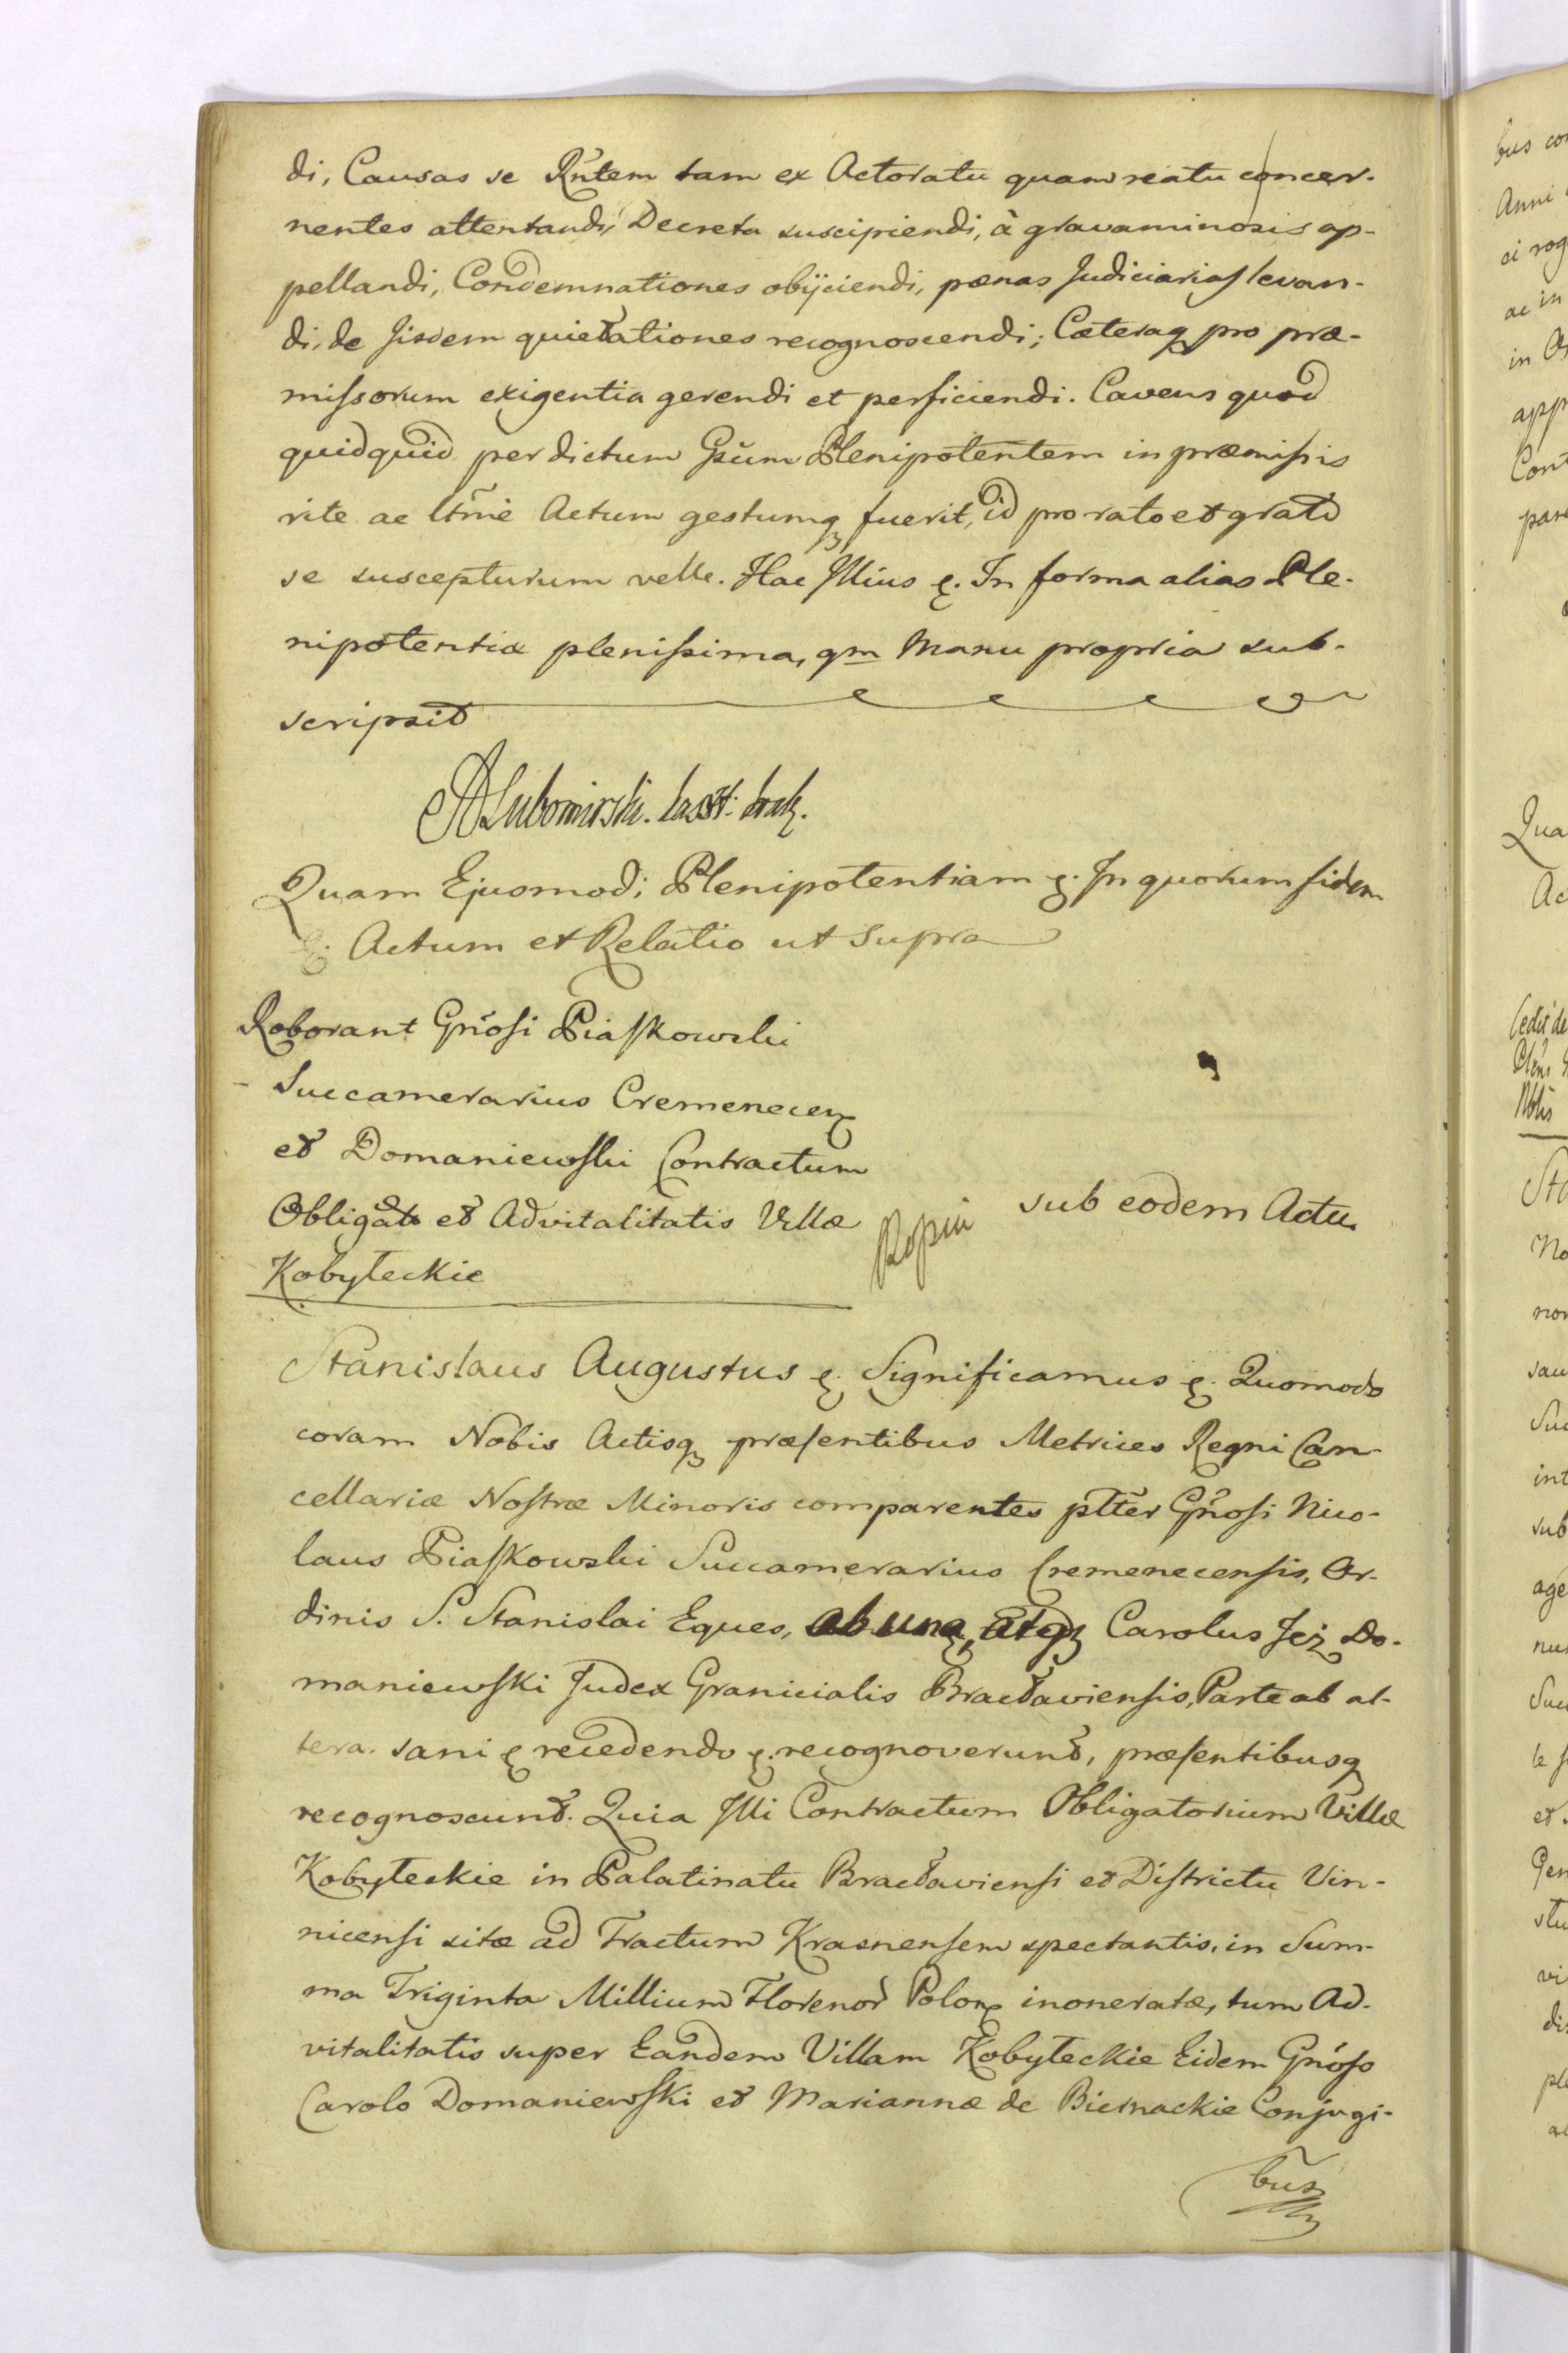 di, Causas se Rñtem tam ex Actoratu quam reatu concer-
nentes attentandi, Decreta suscipiendi, à gravaminosis ap-
pellandi, Condemnationes obijciendi, pœnas Judiciarias levan-
di, de Jisdem quietationes recognoscendi; Cæteraq pro præ-
missorum exigentia gerendi et perficiendi. Cavens quod
quidquid per dictum Gsum Plenipotentem in præmissis
rite ac ltmè Actum gestumq fuerit, id pro rato et grato
se suscepturum velle. Hac Illius &. In forma alias Ple-
nipotentia plenissima, qm Manu propria sub-
scripsit
A Lubomirski. kaszt:
Quam Ejusmodi Plenipotentiam &. In quorum fidem
&. Actum et Relatio ut supra
Roborant Gñosi Piaskowski
Succamerarius Cremenecen
et Domaniewski Contractum
Obligato et Advitalitatis Villæ
Kobyłeckie
sub eodem Actu
Stanislaus Augustus &. Significamus &. Quomodo
coram Nobis Actisq præsentibus Metrices Regni Can-
cellariæ Nostræ Minoris comparentes pltter Gñosi Nico-
laus Piaskowski Succamerarius Cremenecensis, Or-
dinis S. Stanislai Eques, ab una, atq Carolus Jeż Do-
maniewski Judex Granicialis Bracłaviensis, Parte ab al-
tera. sani & recedendo &. recognoverunt, præsentibusq
recognoscunt. Quia Illi Contractum Obligatorium Villæ
Kobyłeckie in Palatinatu Bracłaviensi et Districtu Vin-
nicensi sitæ ad Tractum Krasnensem spectantis, in Sum-
ma Triginta Millium Florenor Polon inoneratæ, tum Ad-
vitalitatis super Eandem Villam Kobyłeckie Eidem Gñoso
Carolo Domaniewski et Mariannæ de Biernackie Conjugi-
bus